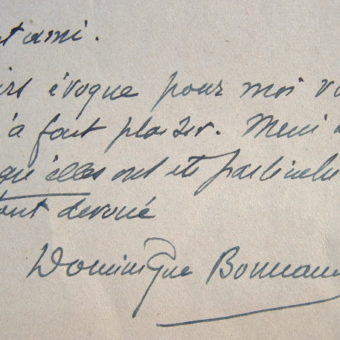 t ami.
évoque pour moi v
'a fait plaisir. Merci
qu'elles ont été particul
tout dévoué
Dominique Bonnau